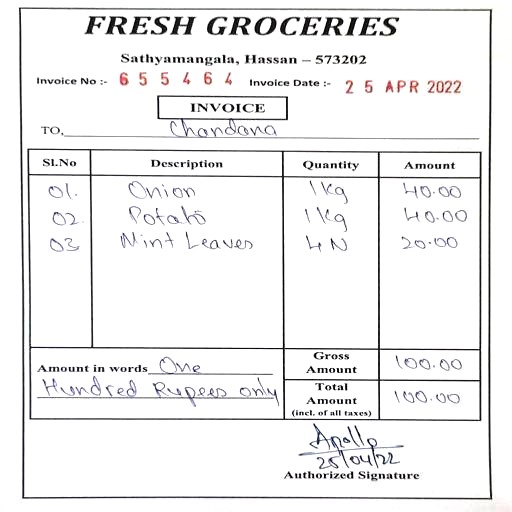 FRESH GROCERIES
Sathyamangala, Hassan – 573202
Invoice No :- 655464 Invoice Date :- 25 APR 2022
INVOICE
TO, Chandana
Sl.No Description Quantity Amount
01. Onion 1kg 40.00
02. Potato 1kg 40.00
03 Mint Leaves 4N 20.00
Amount in words One
Hundred Rupees only
Gross
Amount
100.00
Total
Amount
(incl. of all taxes)
100.00
Apollo
25/04/22
Authorized Signature